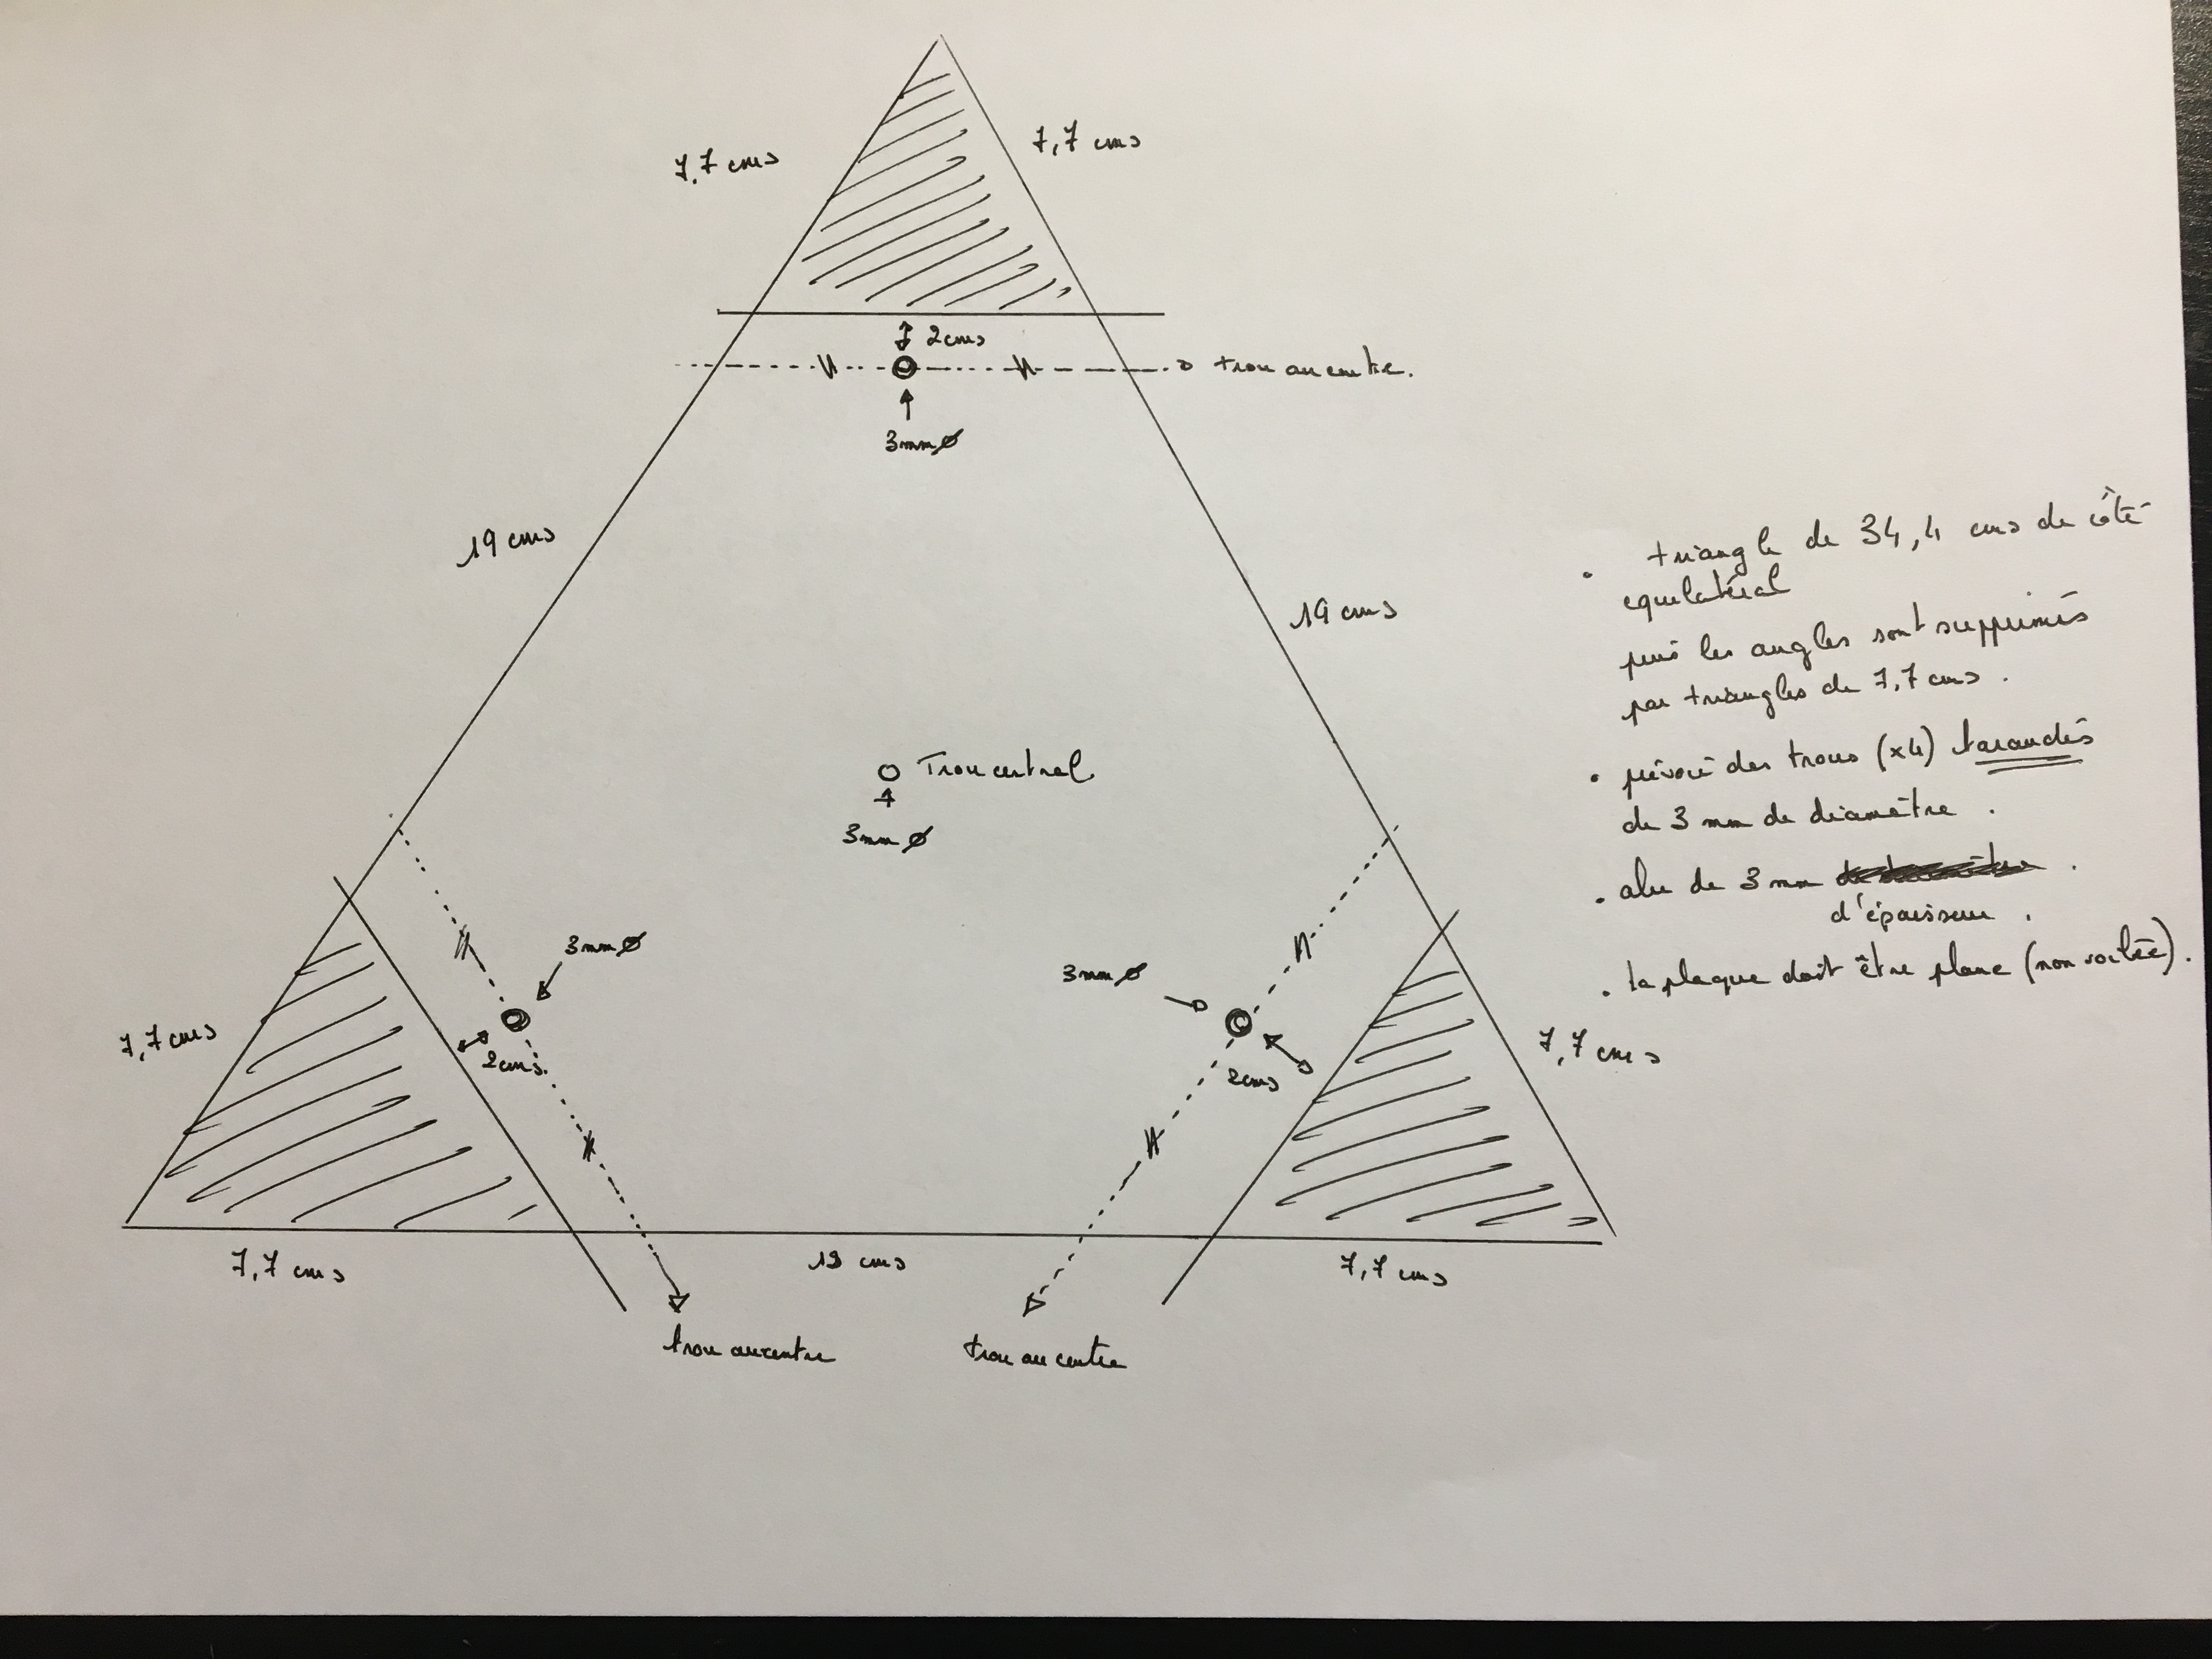 7,7 cms
7,7 cms
2cms
trou au centre.
3mm Ø
19 cms
19 cms
Trou central
3mm Ø
3mm Ø
3mm Ø
7,7 cms
2cms.
2cms
7,7 cms
7,7 cms
19 cms
7,7 cms
trou au centre
trou au centre
. triangle de 34,4 cms de côté
equilatéral
puis les angles sont supprimés
par triangles de 7,7 cms.
. prévoir des trous (x4) taraudés
de 3 mm de diamètre.
. alu de 3 mm
d'épaisseur.
. la plaque doit être plane (non voilée).